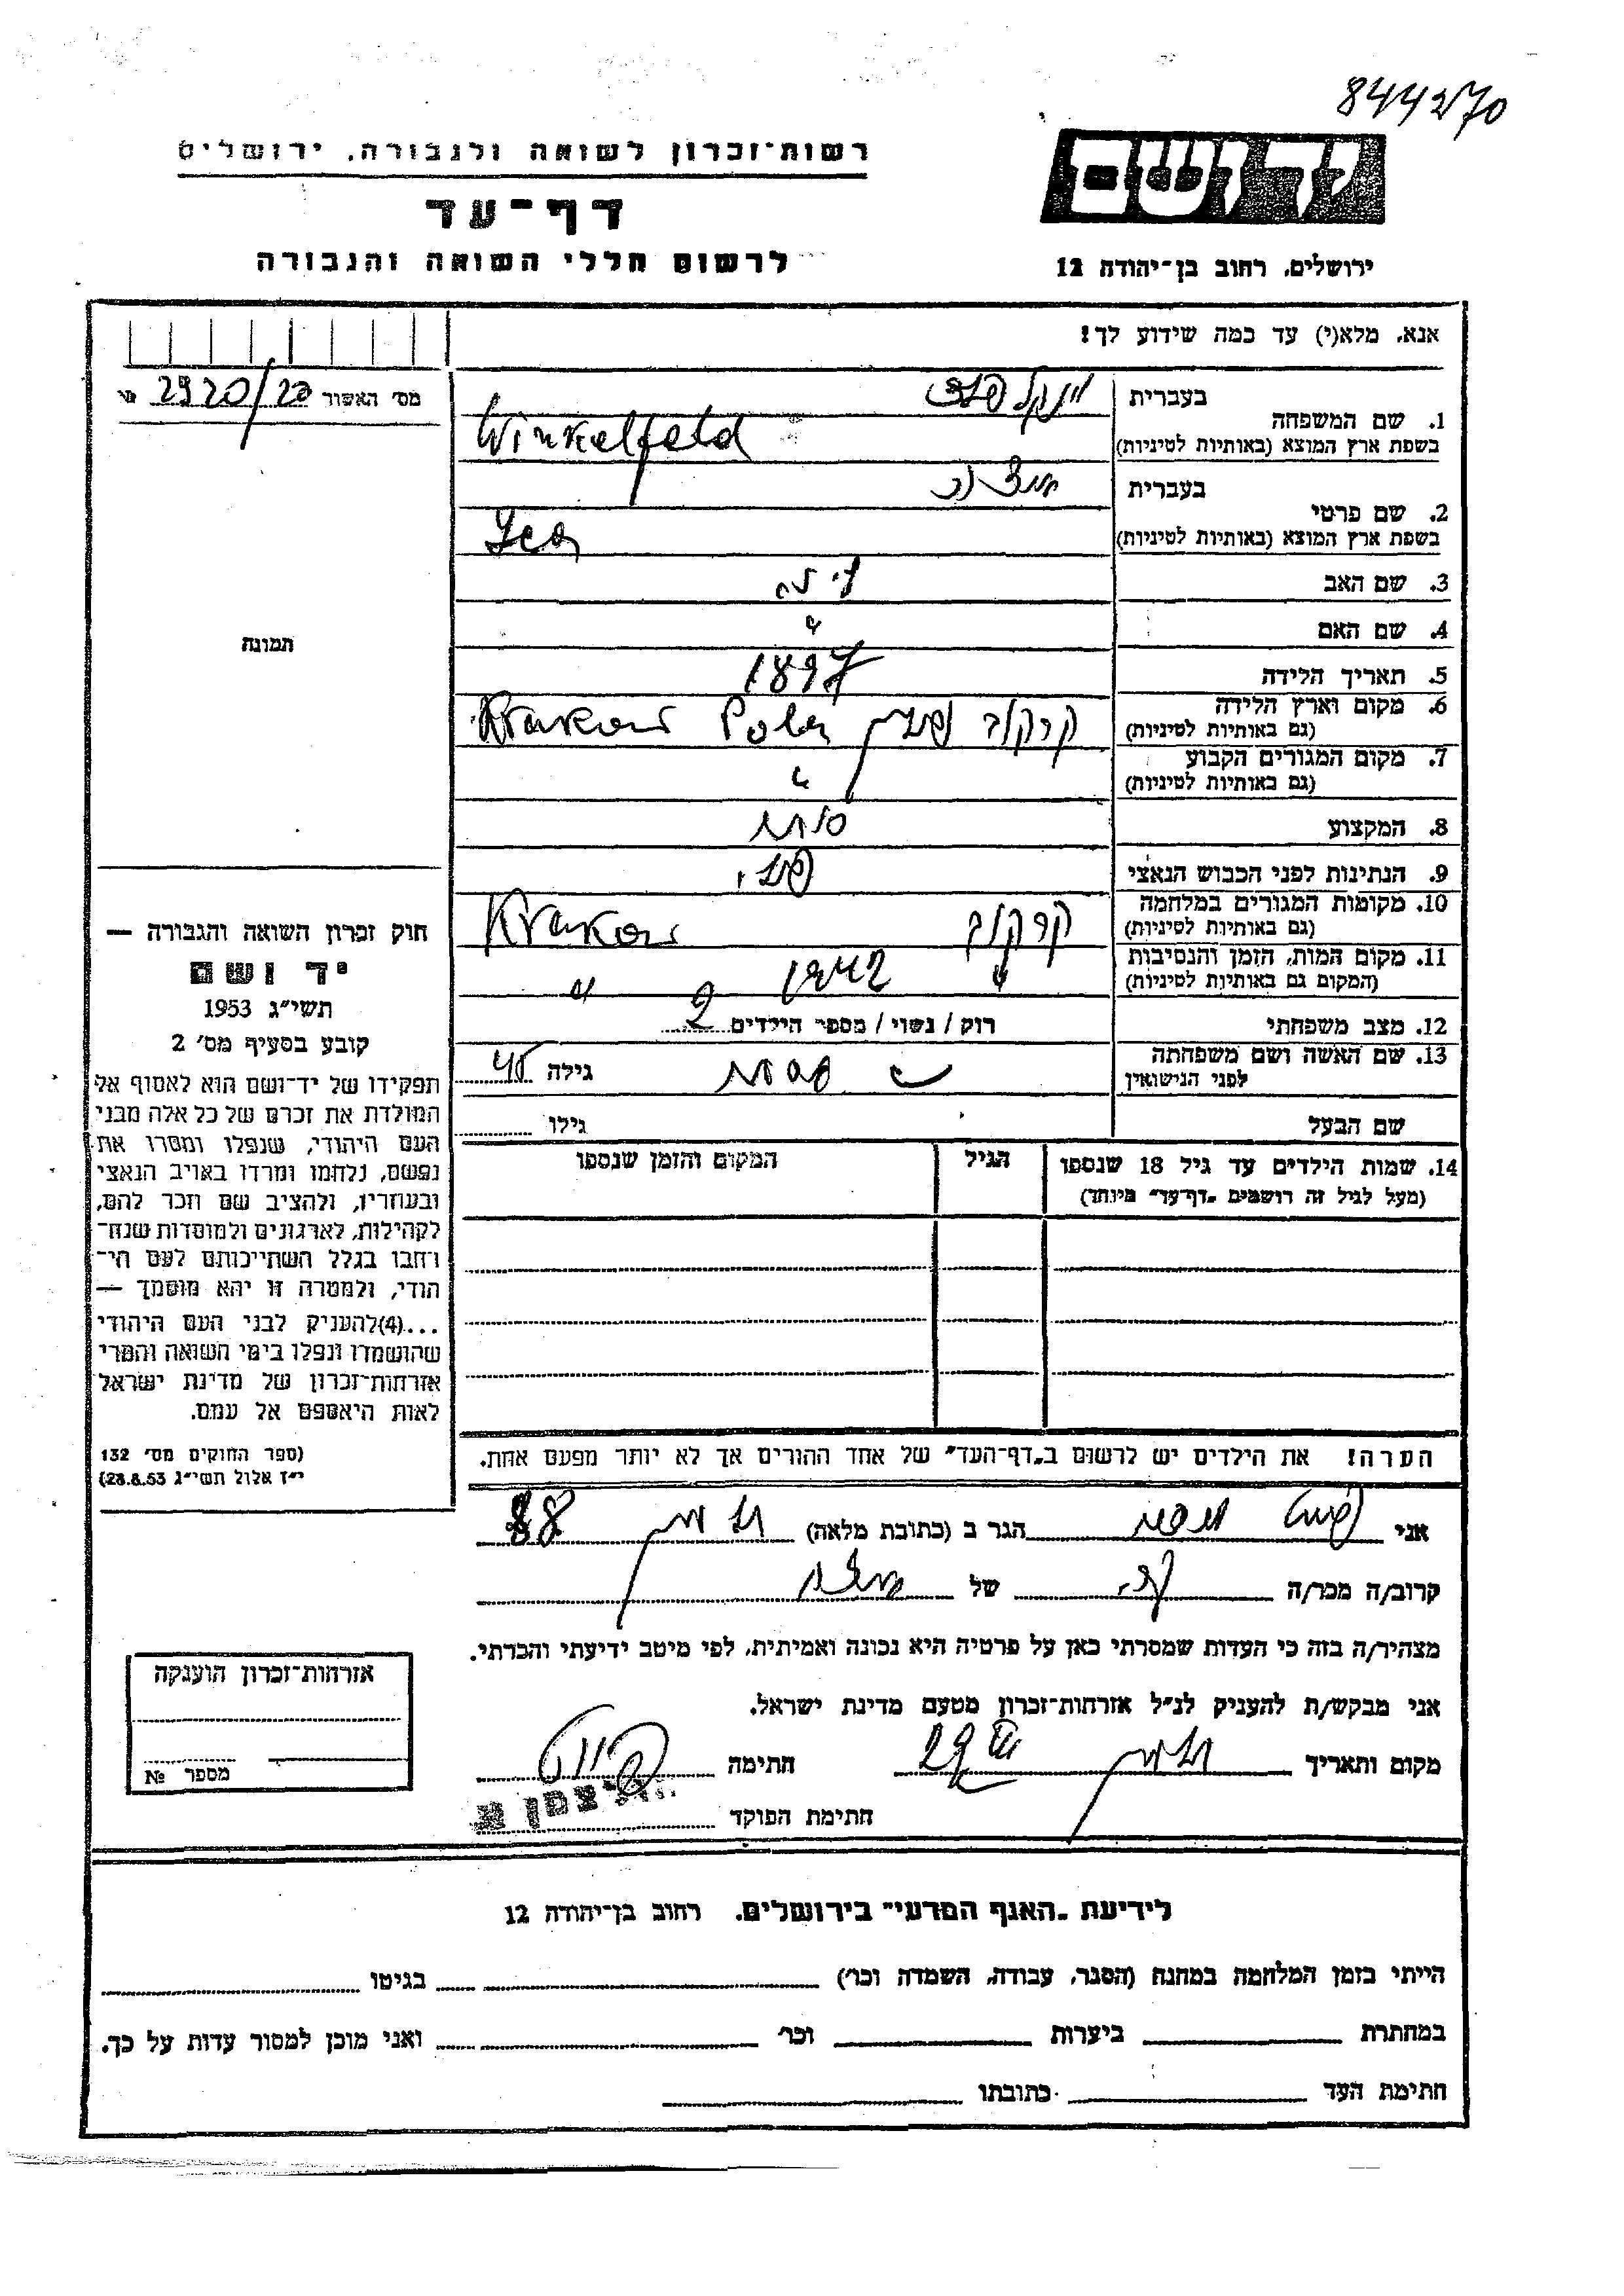 844270
רשות־זכרון לשואה ולגבורה, ירושלים
דף־עד
לרשום חללי השואה והגבורה
יד ושם
ירושלים, רחוב בן־יהודה 12
אנא, מלא(י) עד כמה שידוע לך!
מס׳ האשור 2920/20 №
בעברית וינקלפלד
1. שם המשפחה
בשפת ארץ המוצא (באותיות לטיניות) Winkelfeld
בעברית
2. שם פרטי
בשפת ארץ המוצא (באותיות לטיניות)
3. שם האב
4. שם האם
5. תאריך הלידה 1897
6. מקום וארץ הלידה קרקוב פולין Krakow
(גם באותיות לטיניות)
7. מקום המגורים הקבוע "
(גם באותיות לטיניות)
8. המקצוע סוחר
9. הנתינות לפני הכבוש הנאצי פולני
10. מקומות המגורים במלחמה קרקוב Krakow
(גם באותיות לטיניות)
11. מקום המות, הזמן והנסיבות " 1942 "
(המקום גם באותיות לטיניות)
12. מצב משפחתי רוק / נשוי / מספר הילדים 2
13. שם האשה ושם משפחתה
לפני הנישואין
גילה 45
שם הבעל גילו
14. שמות הילדים עד גיל 18 שנספו
(מעל לגיל זה רושמים „דף־עד״ מיוחד)
הגיל
המקום והזמן שנספו
הערה! את הילדים יש לרשום ב„דף־העד״ של אחד ההורים אך לא יותר מפעם אחת.
תמונה
חוק זכרון השואה והגבורה —
יד ושם
תשי״ג 1953
קובע בסעיף מס׳ 2
תפקידו של יד־ושם הוא לאסוף אל
המולדת את זכרם של כל אלה מבני
העם היהודי, שנפלו ומסרו את
נפשם, נלחמו ומרדו באויב הנאצי
ובעוזריו, ולהציב שם וזכר להם,
לקהילות, לארגונים ולמוסדות שנח־
רבו בגלל השתייכותם לעם הי־
הודי, ולמטרה זו יהא מוסמך —
...(4)להעניק לבני העם היהודי
שהושמדו ונפלו בימי השואה והמרי
אזרחות־זכרון של מדינת ישראל
לאות היאספם אל עמם.
(ספר החוקים מס׳ 132
י״ז אלול תשי״ג 28.8.53)
אני הגר ב (כתובת מלאה) 88
קרוב/ה מכר/ה של
מצהיר/ה בזה כי העדות שמסרתי כאן על פרטיה היא נכונה ואמיתית, לפי מיטב ידיעתי והכרתי.
אני מבקש/ת להעניק לנ״ל אזרחות־זכרון מטעם מדינת ישראל.
מקום ותאריך חתימה
חתימת הפוקד
אזרחות־זכרון הוענקה
מספר №
לידיעת „האגף המדעי״ בירושלים, רחוב בן־יהודה 12
הייתי בזמן המלחמה במחנה (הסגר, עבודה, השמדה וכו׳) בגיטו
במחתרת ביערות וכו׳ ואני מוכן למסור עדות על כך.
חתימת העד כתובתו